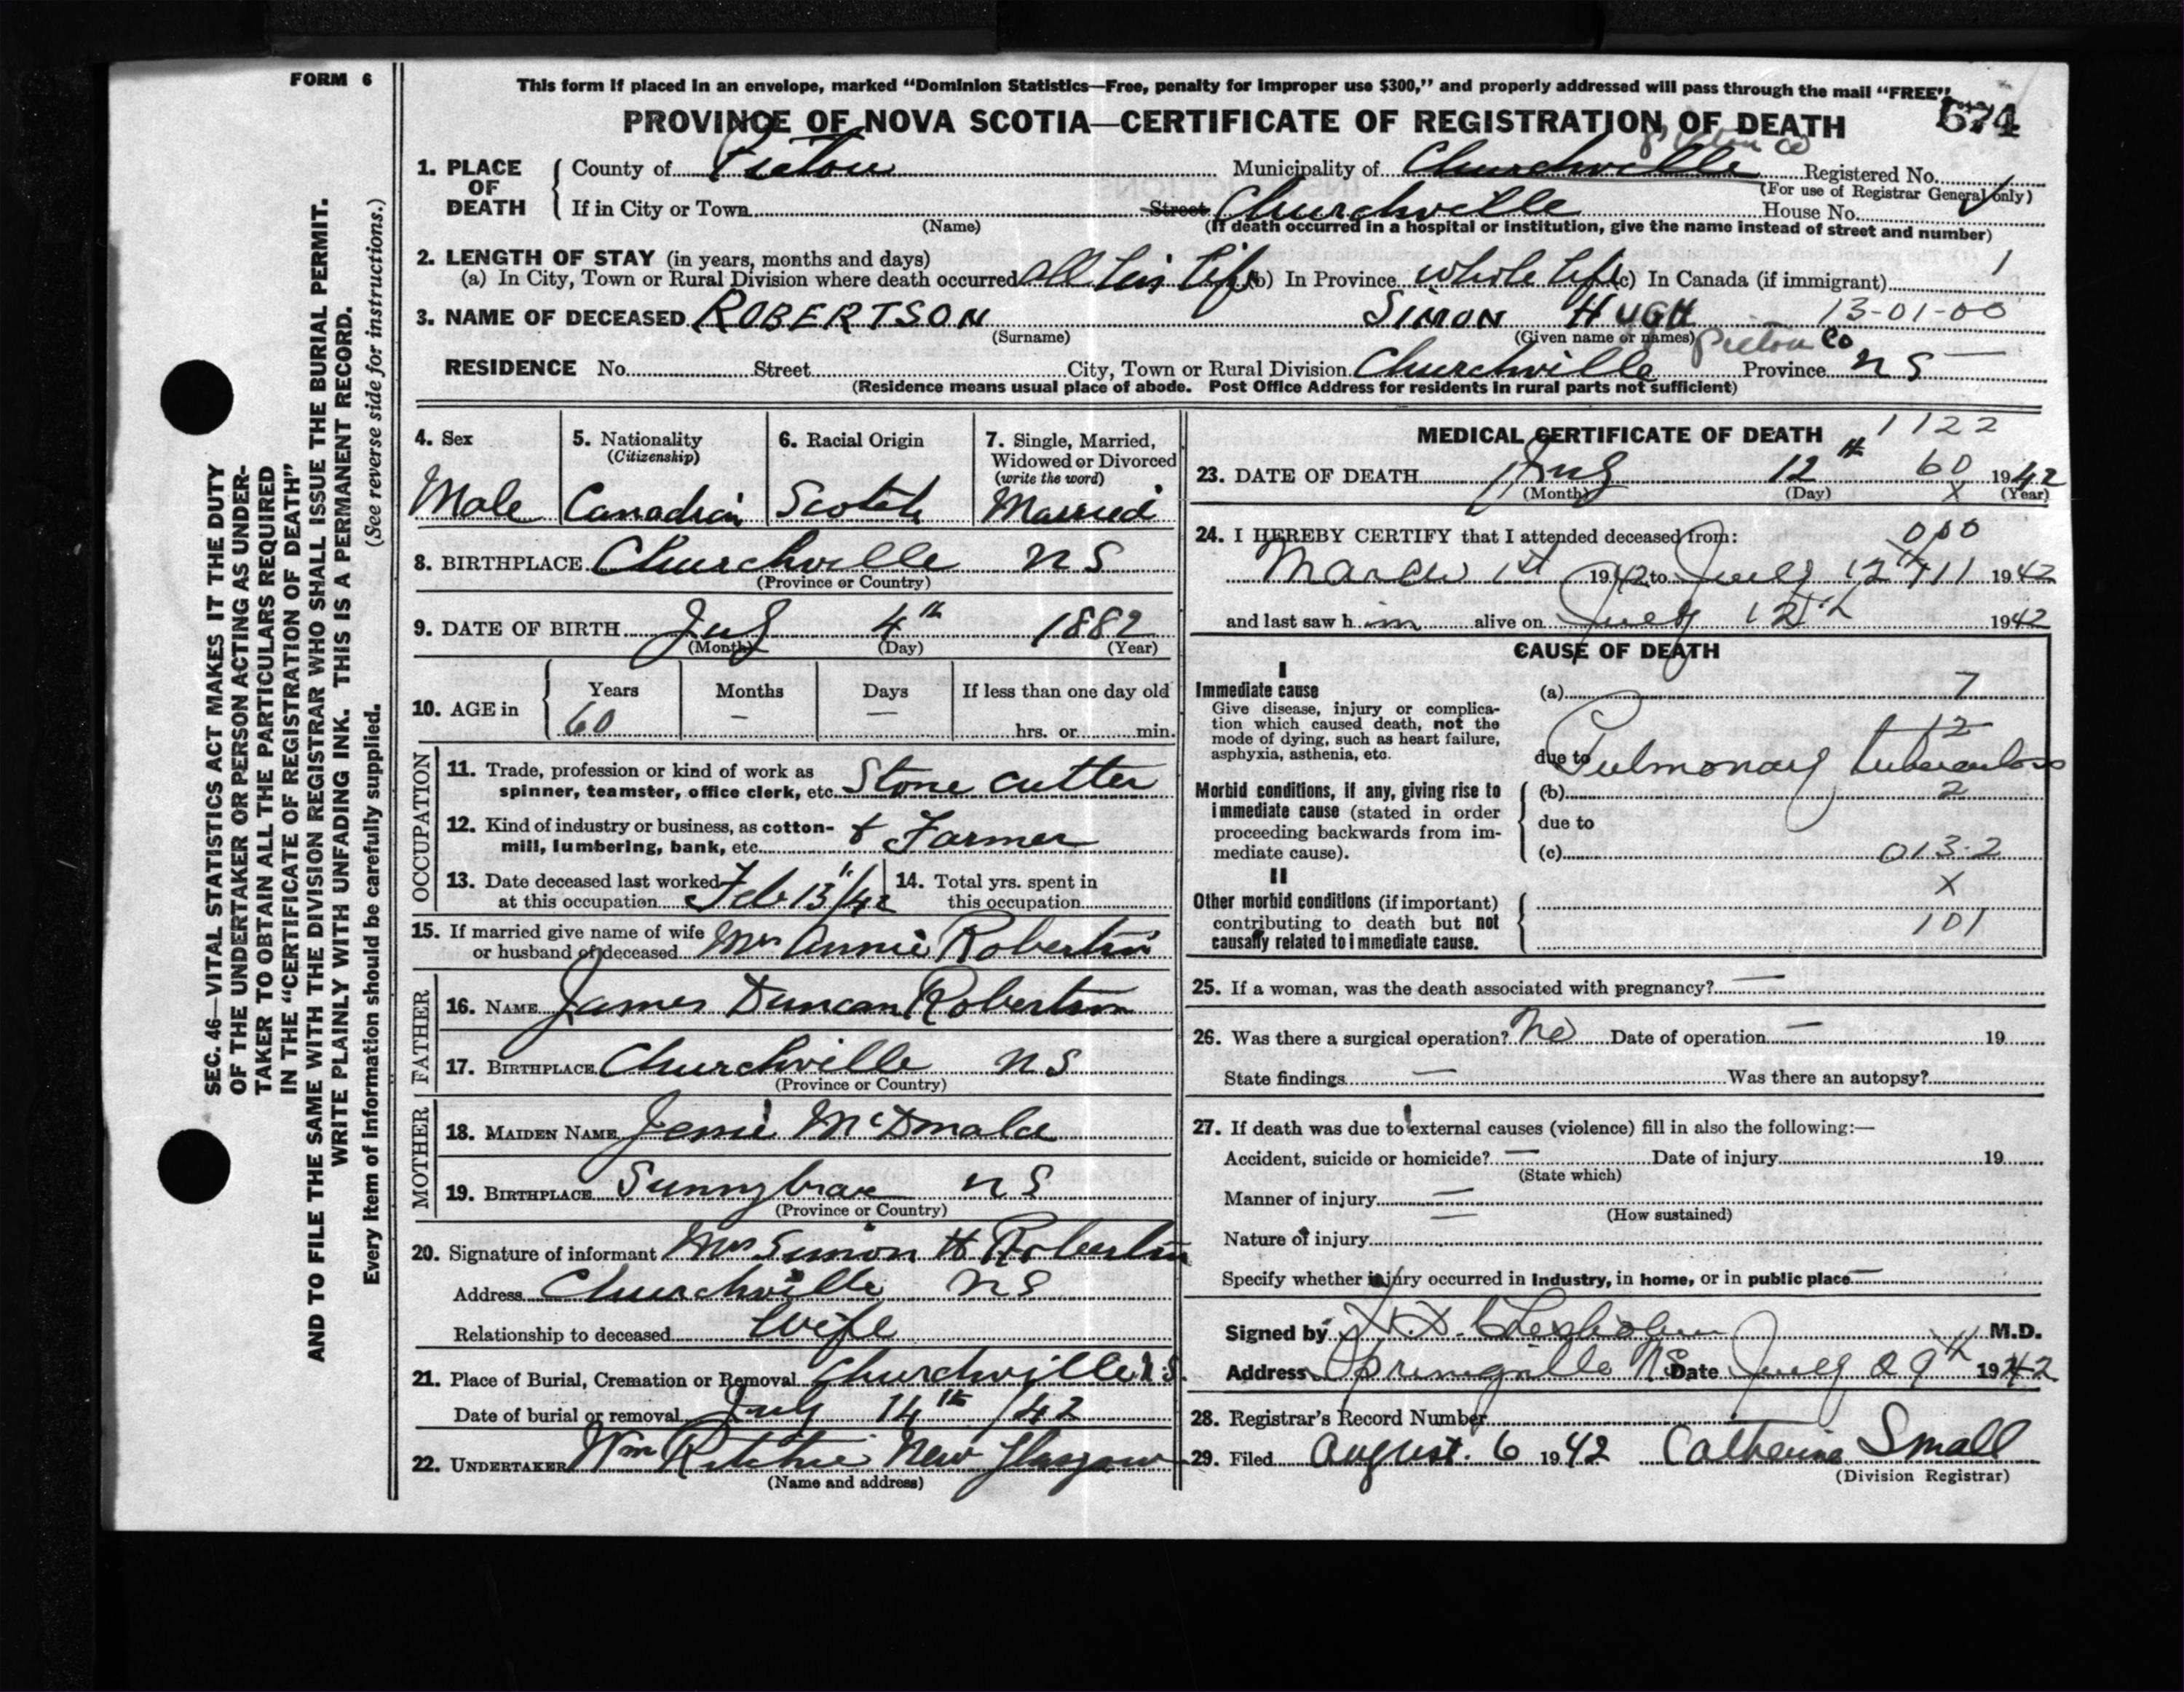 FORM 6
This form if placed in an envelope, marked “Dominion Statistics—Free, penalty for improper use $300,” and properly addressed will pass through the mail “FREE”
PROVINCE OF NOVA SCOTIA—CERTIFICATE OF REGISTRATION OF DEATH
674
1. PLACE OF DEATH
County of Pictou Municipality of Churchville Pictou Co Registered No.
(For use of Registrar General only)
If in City or Town Street Churchville House No.
(Name) (If death occurred in a hospital or institution, give the name instead of street and number)
2. LENGTH OF STAY (in years, months and days)
(a) In City, Town or Rural Division where death occurred all his life (b) In Province whole life (c) In Canada (if immigrant) 1
3. NAME OF DECEASED ROBERTSON SIMON HUGH 13-01-00
(Surname) (Given name or names)
Pictou Co
RESIDENCE No. Street City, Town or Rural Division Churchville Province N S
(Residence means usual place of abode. Post Office Address for residents in rural parts not sufficient)
4. Sex
Male
5. Nationality
(Citizenship)
Canadian
6. Racial Origin
Scotch
7. Single, Married,
Widowed or Divorced
(write the word)
Married
8. BIRTHPLACE Churchville N S
(Province or Country)
9. DATE OF BIRTH July 4th 1882
(Month) (Day) (Year)
10. AGE in
Years Months Days If less than one day old
60 — — hrs. or min.
OCCUPATION
11. Trade, profession or kind of work as
spinner, teamster, office clerk, etc. Stone cutter
12. Kind of industry or business, as cotton-
mill, lumbering, bank, etc. + Farmer
13. Date deceased last worked
at this occupation Feb 13"/42
14. Total yrs. spent in
this occupation
15. If married give name of wife
or husband of deceased Mrs Annie Robertson
FATHER
16. NAME James Duncan Robertson
17. BIRTHPLACE Churchville N S
(Province or Country)
MOTHER
18. MAIDEN NAME Jessie McDonald
19. BIRTHPLACE Sunnybrae N S
(Province or Country)
20. Signature of informant Mrs Simon H Robertson
Address Churchville N S
Relationship to deceased Wife
21. Place of Burial, Cremation or Removal Churchville N.S.
Date of burial or removal July 14th /42
22. UNDERTAKER Wm Ritchie New Glasgow
(Name and address)
MEDICAL CERTIFICATE OF DEATH
1122
23. DATE OF DEATH July 12th 60 1942
(Month) (Day) X (Year)
24. I HEREBY CERTIFY that I attended deceased from: 000
March 1st 1942 to July 12th 11 1942
and last saw him alive on July 12th 1942
CAUSE OF DEATH
I
Immediate cause
Give disease, injury or complica-
tion which caused death, not the
mode of dying, such as heart failure,
asphyxia, asthenia, etc.
(a) 7
12
due to Pulmonary tuberculosis
Morbid conditions, if any, giving rise to
immediate cause (stated in order
proceeding backwards from im-
mediate cause).
(b) 2
due to
(c) 013-2
II
X
Other morbid conditions (if important)
contributing to death but not
causally related to immediate cause.
101
25. If a woman, was the death associated with pregnancy? —
26. Was there a surgical operation? No Date of operation — 19
State findings — Was there an autopsy?
27. If death was due to external causes (violence) fill in also the following:—
Accident, suicide or homicide? — Date of injury 19
(State which)
Manner of injury —
(How sustained)
Nature of injury —
Specify whether injury occurred in industry, in home, or in public place —
Signed by M.D.
Address Springville N.S. Date July 29th 1942
28. Registrar's Record Number
29. Filed August. 6 1942 Catherine Small
(Division Registrar)
SEC. 46—VITAL STATISTICS ACT MAKES IT THE DUTY
OF THE UNDERTAKER OR PERSON ACTING AS UNDER-
TAKER TO OBTAIN ALL THE PARTICULARS REQUIRED
IN THE “CERTIFICATE OF REGISTRATION OF DEATH”
AND TO FILE THE SAME WITH THE DIVISION REGISTRAR WHO SHALL ISSUE THE BURIAL PERMIT.
WRITE PLAINLY WITH UNFADING INK. THIS IS A PERMANENT RECORD.
Every item of information should be carefully supplied. (See reverse side for instructions.)